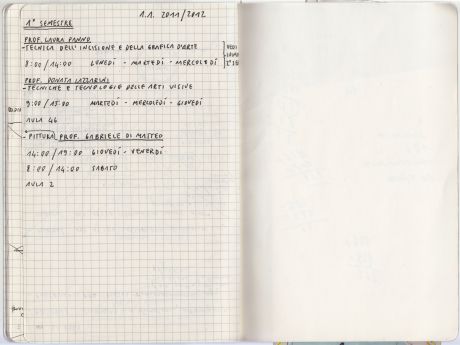 A.A. 2011/2012
1° SEMESTRE
PROF. LAURA PANNO
-TECNICA DELL'INCISIONE E DELLA GRAFICA D'ARTE
8:00/14:00 LUNEDÍ - MARTEDÍ - MERCOLEDÍ
PROF. DONATA LAZZARINI
-TECNICHE E TECNOLOGIE DELLE ARTI VISIVE
9:00/15:00 MARTEDÍ - MERCOLEDÍ - GIOVEDÍ
AULA 46
-PITTURA PROF. GABRIELE DI MATTEO
14:00/19:00 GIOVEDÍ - VENERDÍ
8:00/14:00 SABATO
AULA 2